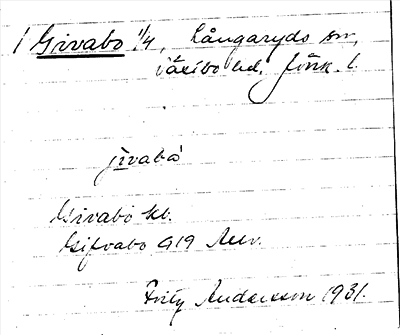 1 Givabo 1/4, Långaryds sn,
Västbo hd. Jönk. l.
jivabö
Givabo kb.
Gifvabo 919 Aev.
Fritz Andersson 1931.